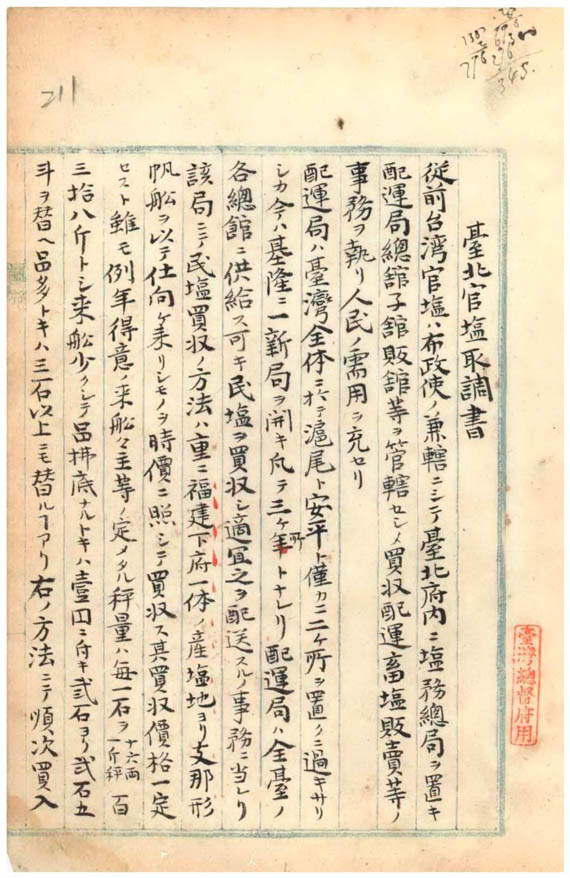 臺北官塩取調書
従前台湾官塩ハ布政使ノ兼轄ニシテ臺北府内ニ塩務總局ヲ置キ
配運局總舘子舘販舘等ヲ管轄セシメ買収配運畜塩販賣等ノ
事務ヲ執リ人民ノ需用ヲ充セリ
配運局ハ臺灣全体ニ於テ滬尾ト安平ト僅カニ二ケ所ヲ置クニ過キサリ
シカ今ハ基隆ニ一新局ヲ開キ凡テ三ケ所トナレリ配運局ハ全臺ノ
各總館ニ供給ス可キ民塩ヲ買収シ適宜之ヲ配送スルノ事務ニ当レリ
該局ニテ民塩買収ノ方法ハ重ニ福建下府一体ノ産塩地ヨリ支那形
帆船ヲ以テ仕向ケ来リシモノヲ時價ニ照シテ買収ス其買収價格一定
セスト雖モ例年得意ノ来船々主等ノ定メタル秤量ハ毎一石ヲ十六両一斤秤百
三拾八斤トシ来船少クシテ品拂底ナルトキハ壹円ニ付キ弐石ヨリ弐石五
斗ヲ替ヘ品多トキハ三石以上ニモ替ルヿアリ右ノ方法ニテ順次買入
臺灣總督府用
211
345.